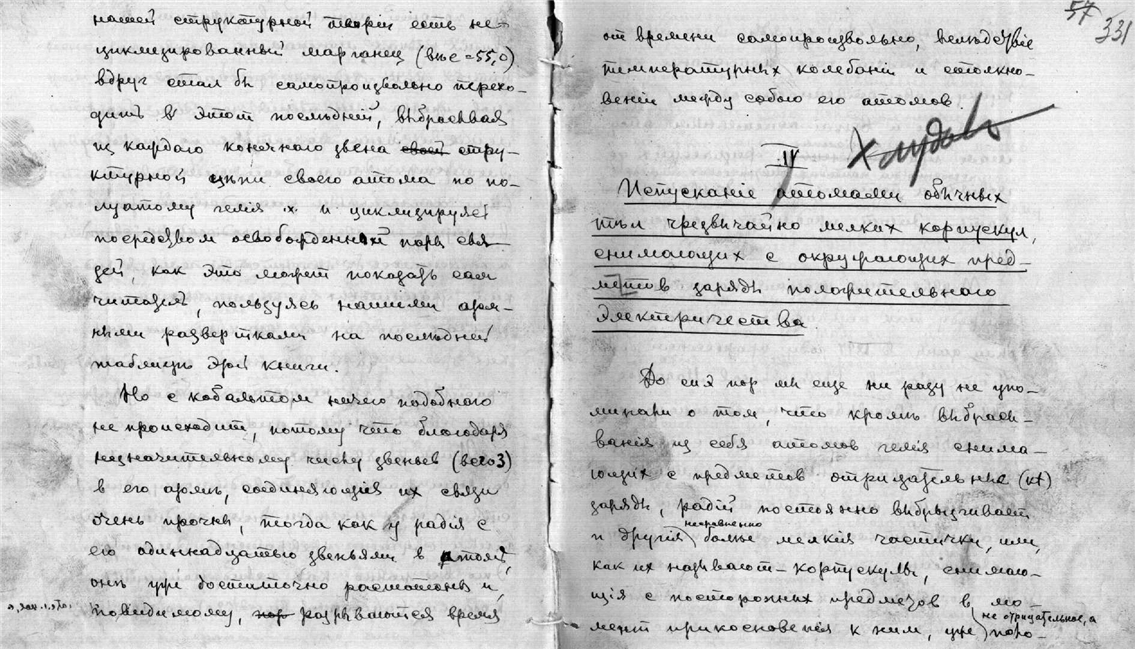 нашей структурной теоріи есть не-
циклизированный марганец (вѣс = 55,0)
вдруг стал бы самопроизвольно перехо-
дить в этот послѣдній, выбрасывая
из каждого конечного звена своей стру-
ктурной цѣпи своего атома по по-
луатому гелія и циклизируясь
посредством освобожденной пары свя-
зей, как это может показать сам
читатель, пользуясь нашими атом-
ными развертками на послѣдней
таблицѣ этой книги.
Но с кобальтом ничего подобного
не происходит, потому что благодаря
незначительному числу звеньев (всего 3)
в его атомѣ, соединяющія их связи
очень прочны, тогда как у радія с
его одиннадцатью звеньями в атомѣ,
онѣ уже достаточно расшатаны и,
повидимому, разрываются время
57
331
от времени самопроизвольно, вслѣдствіе
температурных колебаній и столкно-
веній между собою его атомов.
IV
Испусканіе атомами обычных
тѣл чрезвычайно мелких корпускул,
снимающих с окружающих пред-
метов заряды положительного
электричества.
До сих пор мы еще ни разу не упо-
минали о том, что кромѣ выбрасы-
ванія из себя атомов гелія снима-
ющих с предметов отрицательные
заряды, радій постоянно выбрызгивает
несравненно
и другія болѣе мелкія частички, или,
как их называют – корпускулы, снимаю-
щія с посторонних предметов в мо-
не отрицательное, а
мент прикосновенія к ним, уже поло-